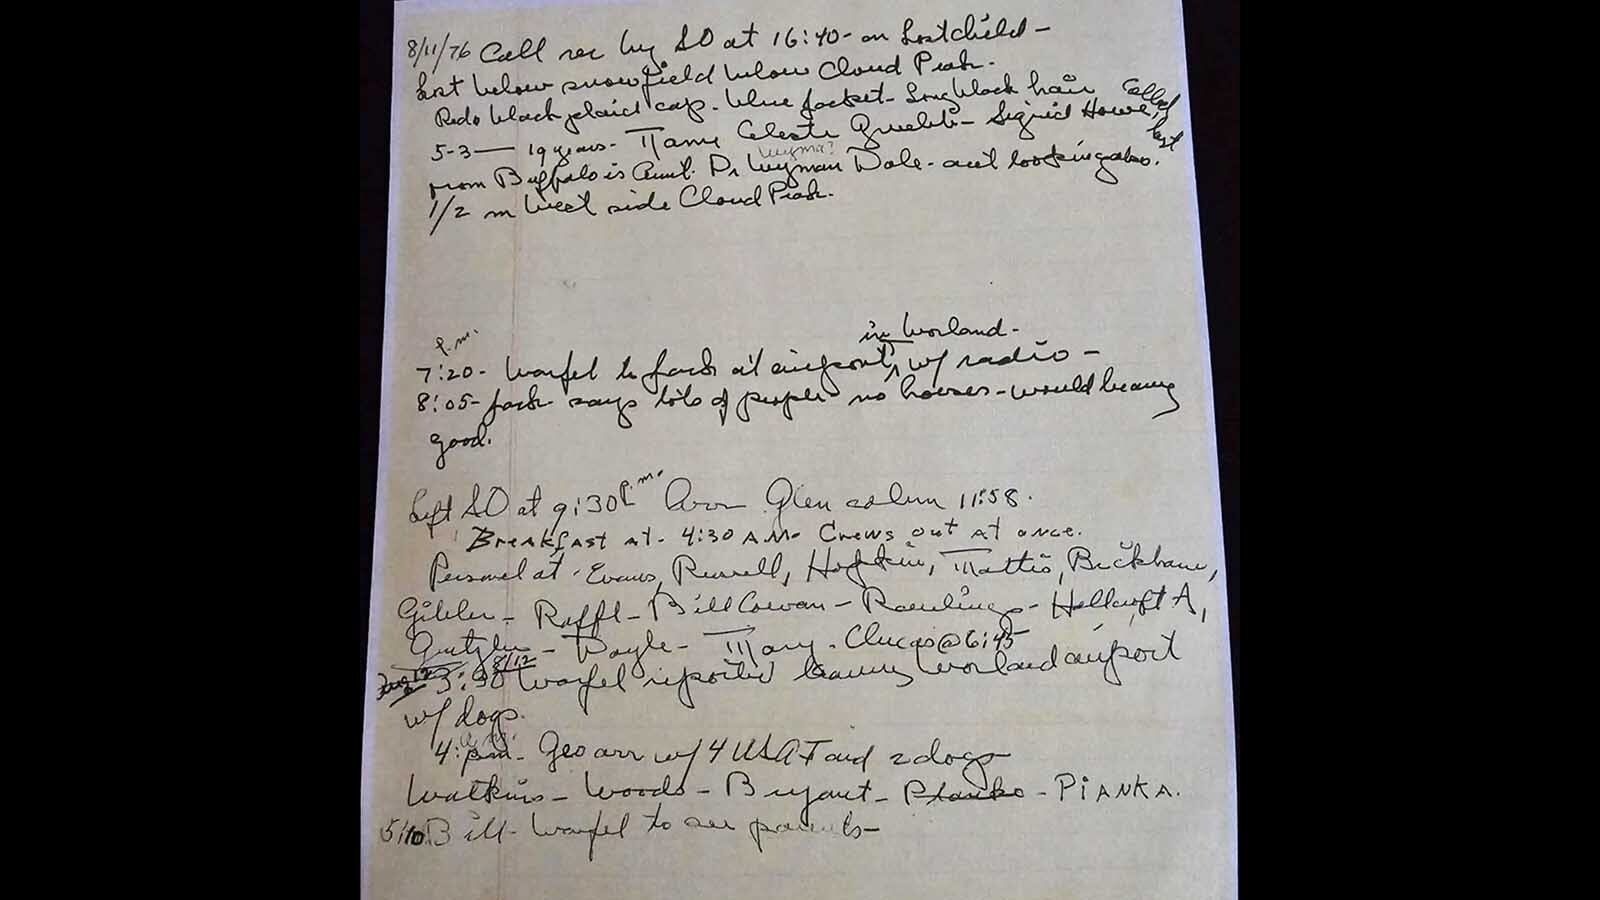 8/11/76 Call rec by SO at 16:40 - on Lost child -
Lost below snowfield below Cloud Peak.
Red & black plaid cap - blue jacket - Long black hair Called
5-3 — 19 years - Celeste - Sigrid Howe, last
from Buffalo is Aunt. Dr Wyman Dale - out looking also.
1/2 m West side Cloud Peak.
in Worland -
p.m.
7:20 - Warfel to Jack at airport w/ radio -
8:05 - Jack says lots of people no horses - would be any
good.
Left SO at 9:30 p.m. Arr Glen 11:58.
Breakfast at - 4:30 A.M. Crews out at once.
Personel at - Evans, Russell, Hopkin, Mattis, Brickbane,
- Raffl - Bill Cowan - Rawlings - Hollcroft A,
- Doyle - Mary - Clucas @ 6:45
8/12
3:30 Warfel reported leaving Worland airport
w/ dogs.
4: - Geo arr w/ 4 USAF and 2 dogs
Watkins - Woods - Bryant - - PiANKA.
5:10 Bill - Warfel to see parents -